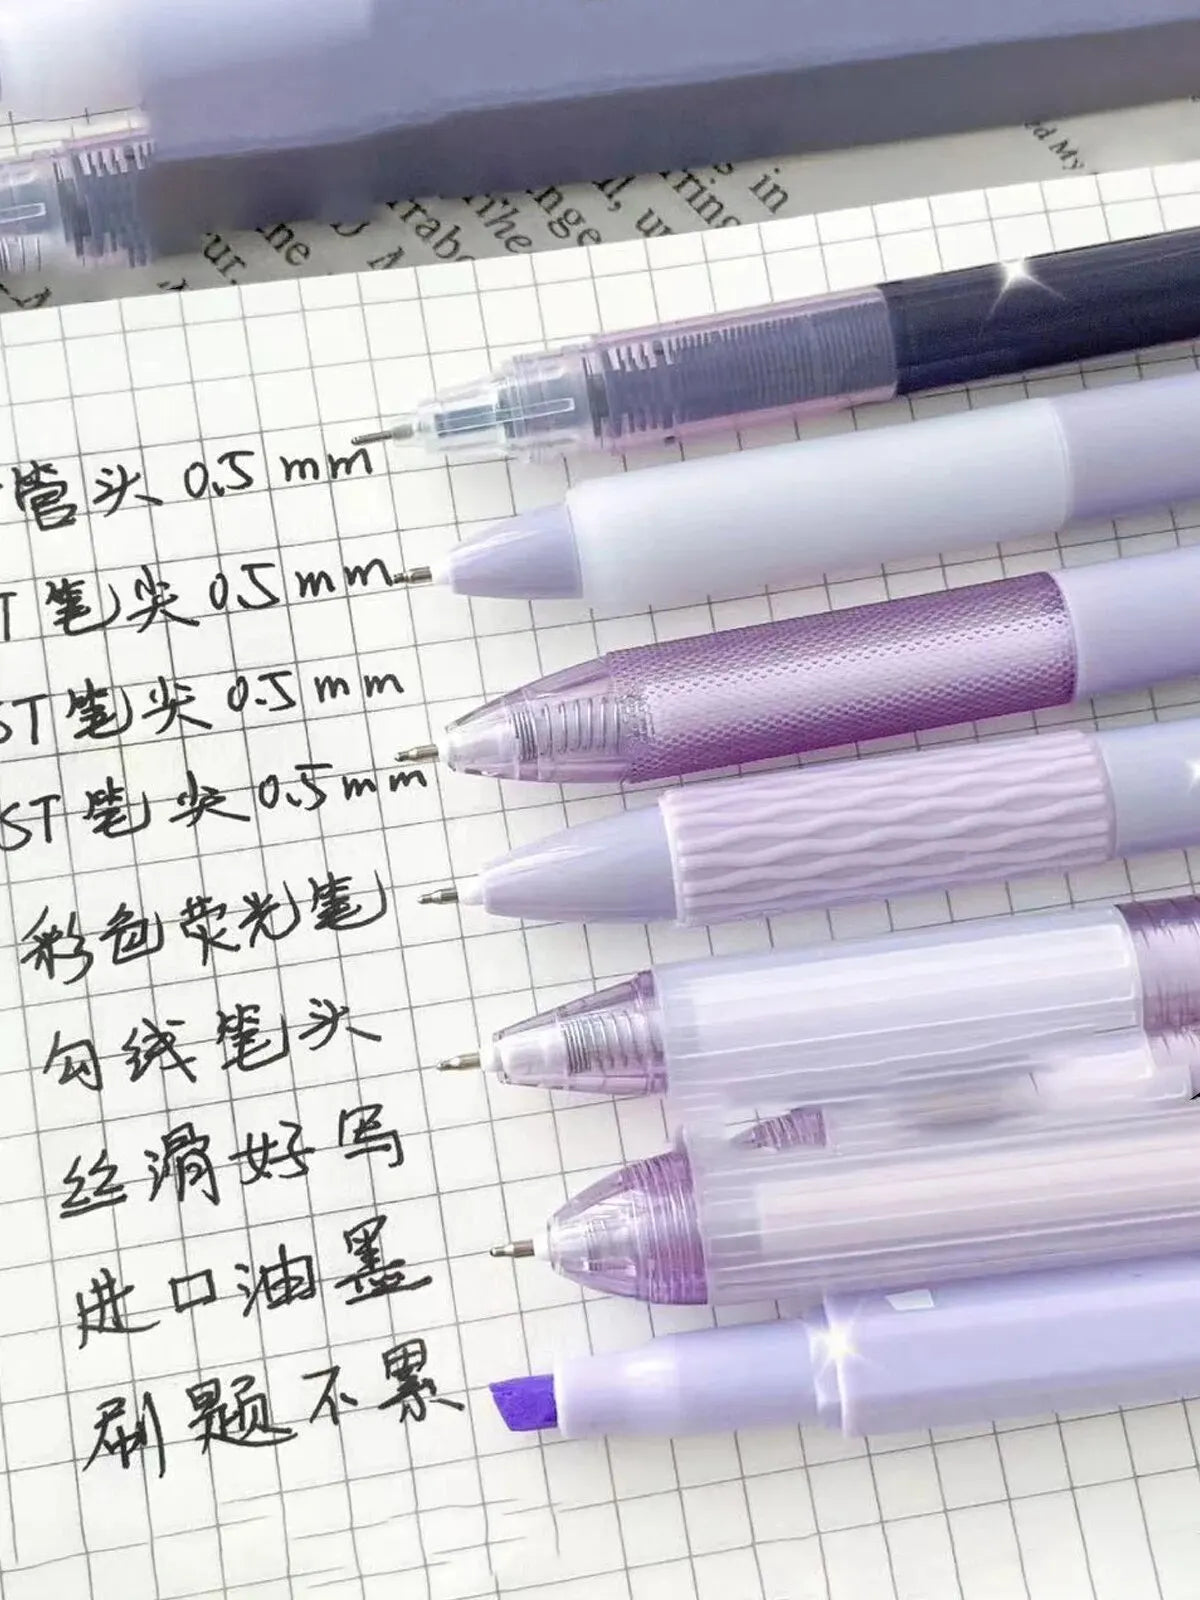 ed My
in
rring
l, u
nge
The
rrab
ne
ur.
管头 0.5 mm
T 笔尖 0.5 mm
ST 笔尖 0.5 mm
ST 笔尖 0.5 mm
彩色荧光笔
勾线笔头
丝滑好写
进口油墨
刷题不累